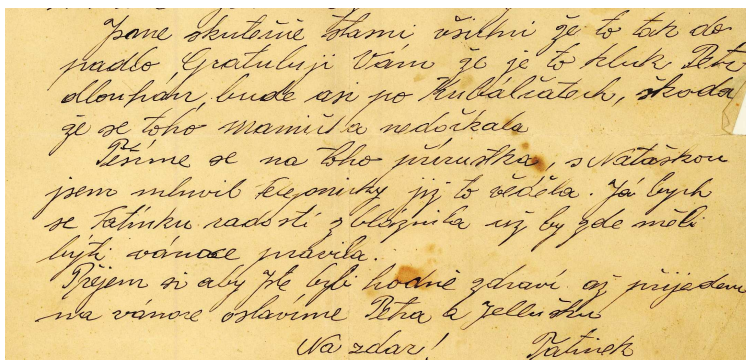 Jsme skutečně všichni že to tak do
padlo Gratuluji Vám že je to kluk Petr
dlouhán, bude asi po Kubálčatech, škoda
že se toho maminka nedočkala
Těšíme se na toho přírustka, s Natáškou
jsem mluvil již to věděla. Já bych
se Tatínku radostí zbláznila už by zde měli
býti vánoce pravila.
Přejem si aby jste byli hodně zdraví až přijedem
na vánoce oslavíme Petra a
Na zdar! Tatínek